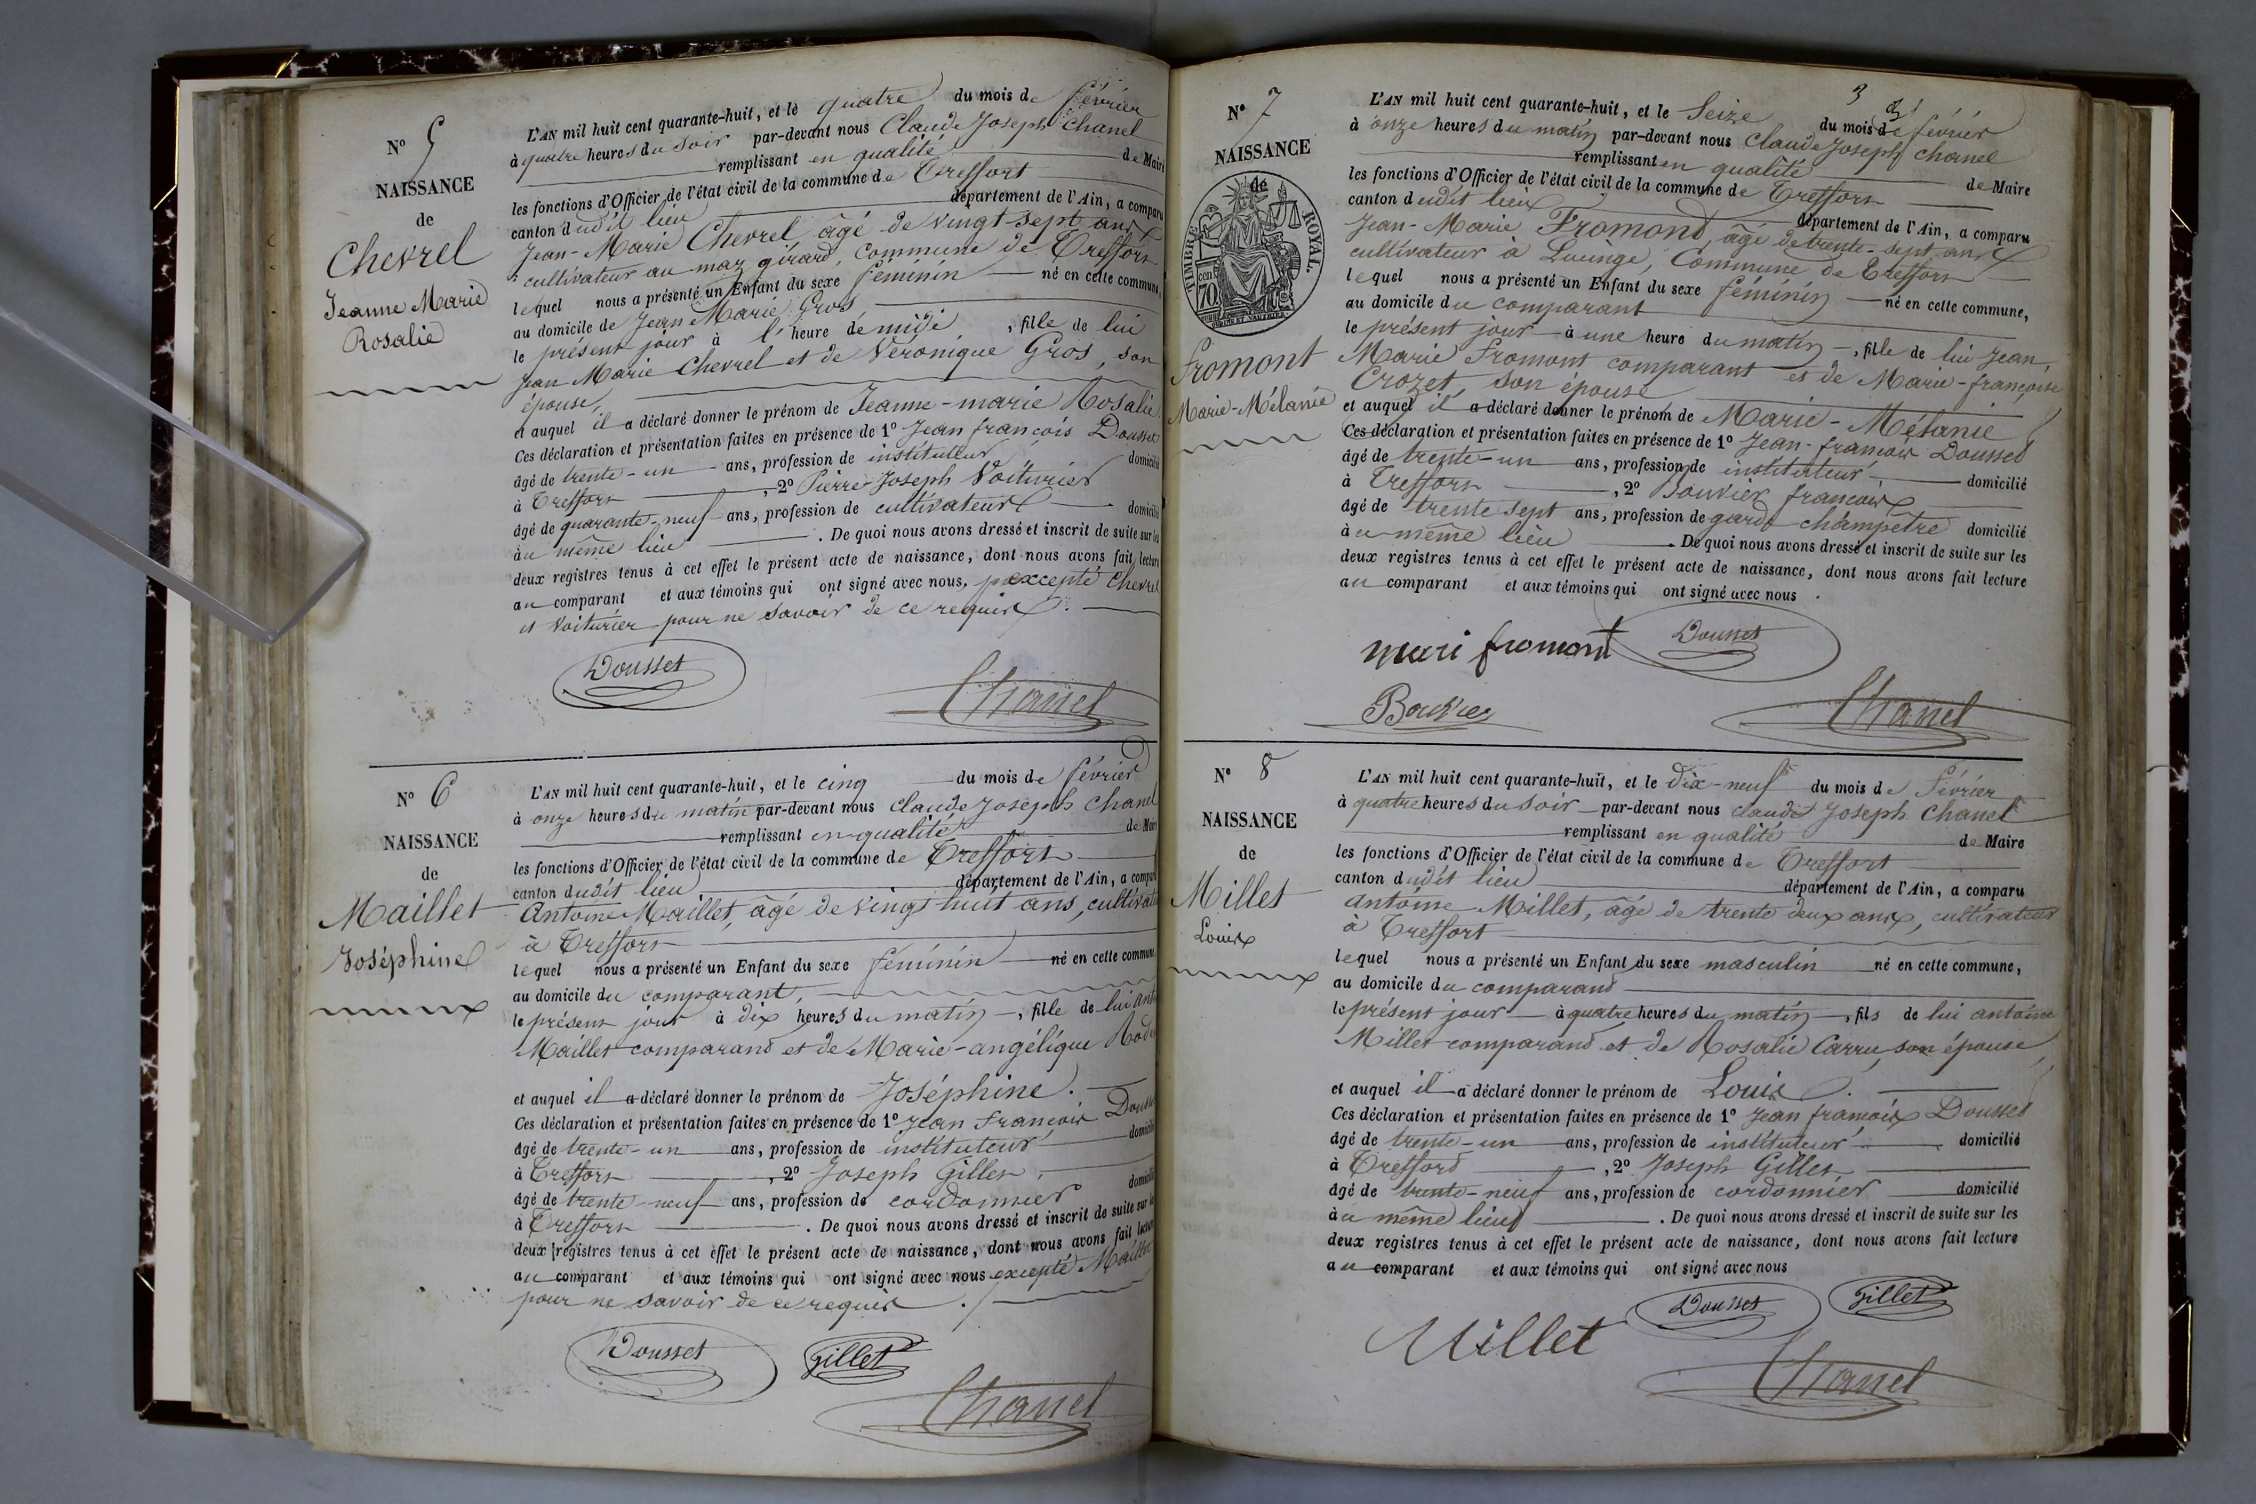 N° 5
NAISSANCE
de
Chevrel
Jeanne Marie
Rosalie
L'AN mil huit cent quarante-huit, et le quatre du mois de février
à quatre heures du soir par-devant nous Claude Joseph Chanel
remplissant en qualité de Maire
les fonctions d'Officier de l'état civil de la commune de Treffort
canton dudit lieu département de l'Ain, a comparu
Jean-Marie Chevrel âgé de vingt sept ans
cultivateur au maz girard, Commune de Treffort
lequel nous a présenté un Enfant du sexe féminin né en cette commune,
au domicile de Jean Marie Gros
le présent jour à l'heure de midi, fille de lui
Jean Marie Chevrel et de Véronique Gros, son
épouse,
et auquel il a déclaré donner le prénom de Jeanne-marie Rosalie
Ces déclaration et présentation faites en présence de 1° Jean françois Dousset
âgé de trente-un ans, profession de instituteur domicilié
à Treffort, 2° Pierre-Joseph Voiturier
âgé de quarante-neuf ans, profession de cultivateur domicilié
au même lieu. De quoi nous avons dressé et inscrit de suite sur les
deux registres tenus à cet effet le présent acte de naissance, dont nous avons fait lecture
au comparant et aux témoins qui ont signé avec nous, excepté Chevrel
et Voiturier pour ne savoir de ce requis.
Dousset
Chanel
N° 6
NAISSANCE
de
Maillet
Joséphine
L'AN mil huit cent quarante-huit, et le cinq du mois de février
à onze heures du matin par-devant nous Claude Joseph Chanel
remplissant en qualité de Maire
les fonctions d'Officier de l'état civil de la commune de Treffort
canton dudit lieu département de l'Ain, a comparu
Antoine Maillet, âgé de vingt huit ans, cultivateur
à Treffort
lequel nous a présenté un Enfant du sexe féminin né en cette commune
au domicile du comparant,
le présent jour à dix heures du matin, fille de lui
Maillet comparant et de Marie-angélique
et auquel il a déclaré donner le prénom de Joséphine.
Ces déclaration et présentation faites en présence de 1° Jean François Dousset
âgé de trente-un ans, profession de instituteur domicilié
à Treffort, 2° Joseph Gillet,
âgé de trente-neuf ans, profession de cordonnier domicilié
à Treffort. De quoi nous avons dressé et inscrit de suite sur les
deux registres tenus à cet effet le présent acte de naissance, dont nous avons fait lecture
au comparant et aux témoins qui ont signé avec nous excepté Maillet
pour ne savoir de ce requis.
Dousset Gillet
Chanel
3
N° 7
NAISSANCE
de
TIMBRE ROYAL.
70 cen
fromont
Marie-Mélanie
L'AN mil huit cent quarante-huit, et le Seize du mois de février
à onze heures du matin par-devant nous Claude Joseph Chanel
remplissant en qualité de Maire
les fonctions d'Officier de l'état civil de la commune de Treffort
canton dudit lieu département de l'Ain, a comparu
Jean-Marie Fromond, âgé de trente-sept ans
cultivateur à Lucinge, Commune de Treffort
lequel nous a présenté un Enfant du sexe féminin né en cette commune,
au domicile du comparant
le présent jour à une heure du matin, fille de lui Jean,
Marie Fromont comparant et de Marie-françoise
Crozet, son épouse
et auquel il a déclaré donner le prénom de Marie-Mélanie
Ces déclaration et présentation faites en présence de 1° Jean-françois Dousset
âgé de trente-un ans, profession de instituteur domicilié
à Treffort, 2° Bouvier françois
âgé de trente sept ans, profession de garde champêtre domicilié
au même lieu. De quoi nous avons dressé et inscrit de suite sur les
deux registres tenus à cet effet le présent acte de naissance, dont nous avons fait lecture
au comparant et aux témoins qui ont signé avec nous.
mari fromont Dousset
Bouvier
Chanel
N° 8
NAISSANCE
de
Millet
Louis
L'AN mil huit cent quarante-huit, et le dix-neuf du mois de février
à quatre heures du soir par-devant nous claude Joseph Chanel
remplissant en qualité de Maire
les fonctions d'Officier de l'état civil de la commune de Treffort
canton dudit lieu département de l'Ain, a comparu
antoine Millet, âgé de trente deux ans, cultivateur
à Treffort
lequel nous a présenté un Enfant du sexe masculin né en cette commune,
au domicile du comparand
le présent jour à quatre heures du matin, fils de lui antoine
Millet comparand et de Rosalie Carru, son épouse,
et auquel il a déclaré donner le prénom de Louis.
Ces déclaration et présentation faites en présence de 1° Jean françois Dousset
âgé de trente-un ans, profession de instituteur, domicilié
à Treffort, 2° Joseph Gillet
âgé de trente-neuf ans, profession de cordonnier domicilié
au même lieu. De quoi nous avons dressé et inscrit de suite sur les
deux registres tenus à cet effet le présent acte de naissance, dont nous avons fait lecture
au comparant et aux témoins qui ont signé avec nous
Dousset Gillet
Millet
Chanel